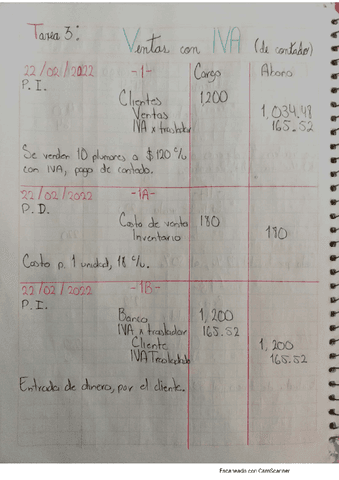 Tarea 3:
Ventas con IVA (de contado)
22/02/2022 -1- Cargo Abono
P. I.
Clientes 1,200
Ventas 1,034.48
IVA x trasladar 165.52
Se venden 10 plumones a $120 c/u
con IVA, pago de contado.
22/02/2022 -1A-
P. D.
Costo de venta 180
Inventario 180
Costo p. 1 unidad, 18 c/u.
22/02/2022 -1B-
P. I.
Banco 1,200
IVA x trasladar 165.52
Cliente 1,200
IVA Trasladado 165.52
Entrada de dinero, por el cliente.
Escaneado con CamScanner